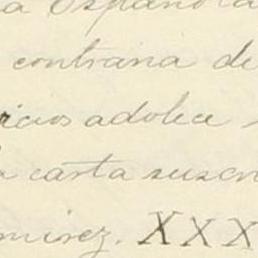 a Española
contraria de
icios adolece
carta suscri
mirez. XXX